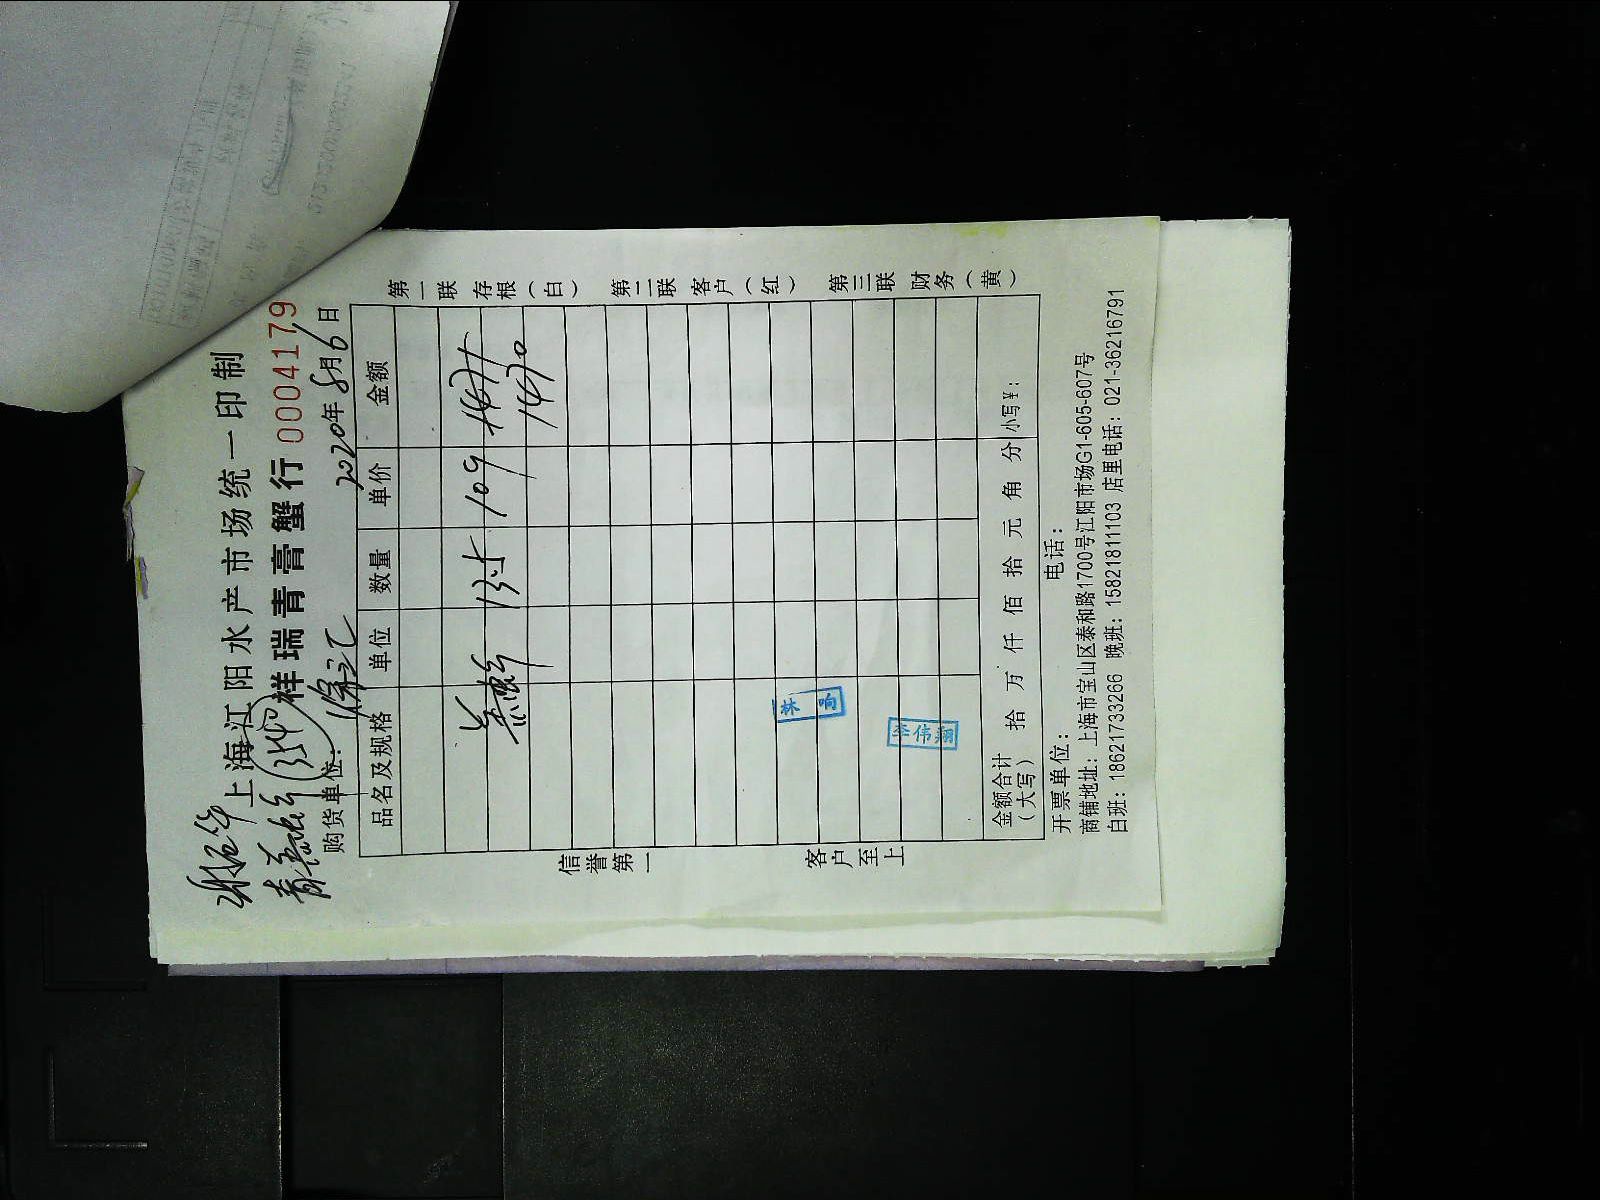 上海江阳水产市场统一印制
祥瑞青膏蟹行 0004179
购货单位: 徐汇 2020年8月6日
品名及规格 单位 数量 单价 金额
13.5 109 1471
1470
林响
李伟翔
金额合计(大写) 拾 万 仟 佰 拾 元 角 分 小写¥:
开票单位: 电话:
商铺地址: 上海市宝山区泰和路1700号江阳市场G1-605-607号
白班: 18621733266 晚班: 15821811103 店里电话: 021-36216791
信誉第一 客户至上
第一联 存根(白) 第二联 客户(红) 第三联 财务(黄)